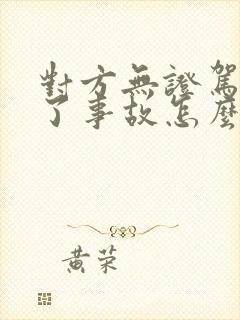 對方無證駕
了事故怎麼
黃荣